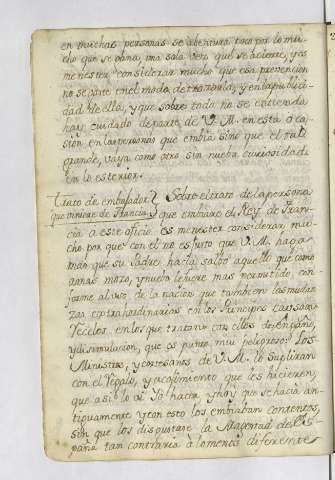 en muchas personas se abentura poco por lo mu-
cho que se gana, una sola vez que se acierte, y es
menester considerar mucho que esa prevencion
no se yerre en el modo de tratarla, y en la publici-
dad de ella, y que sobre todo no se entienda
hay cuidado de parte de V. M. en esta oca-
sion en las personas que embia sino que el mas
grande, vaya como otro sin nueba curiosidad
en lo exterior.
Trato de embajador Sobre el trato de la persona
que viniere de Francia y que embiare el Rey de Fran-
cia a este oficio es menester considerar mu-
cho por que con el no es justo que V. M. haga
mas que su Padre hacia salbo aquello que como
a mas mozo, y nuebo le fuere mas permitido con-
forme al uso de la nacion que tambien las mudan-
zas extrahordinarias en los Principes causan
recelos en los que tratan con ellos de engaño,
y disimulacion, que es punto muy peligroso: los
Ministros, y cortesanos de V. M. lo supliran
con el regalo, y acojimiento que les hicieren,
que asi lo se yo hacia y hoy que se hacia an-
tiguamente y con esto los embiaban contentos,
sin que los disgustase la Magestad de Es-
paña tan contraria à lo menos diferente